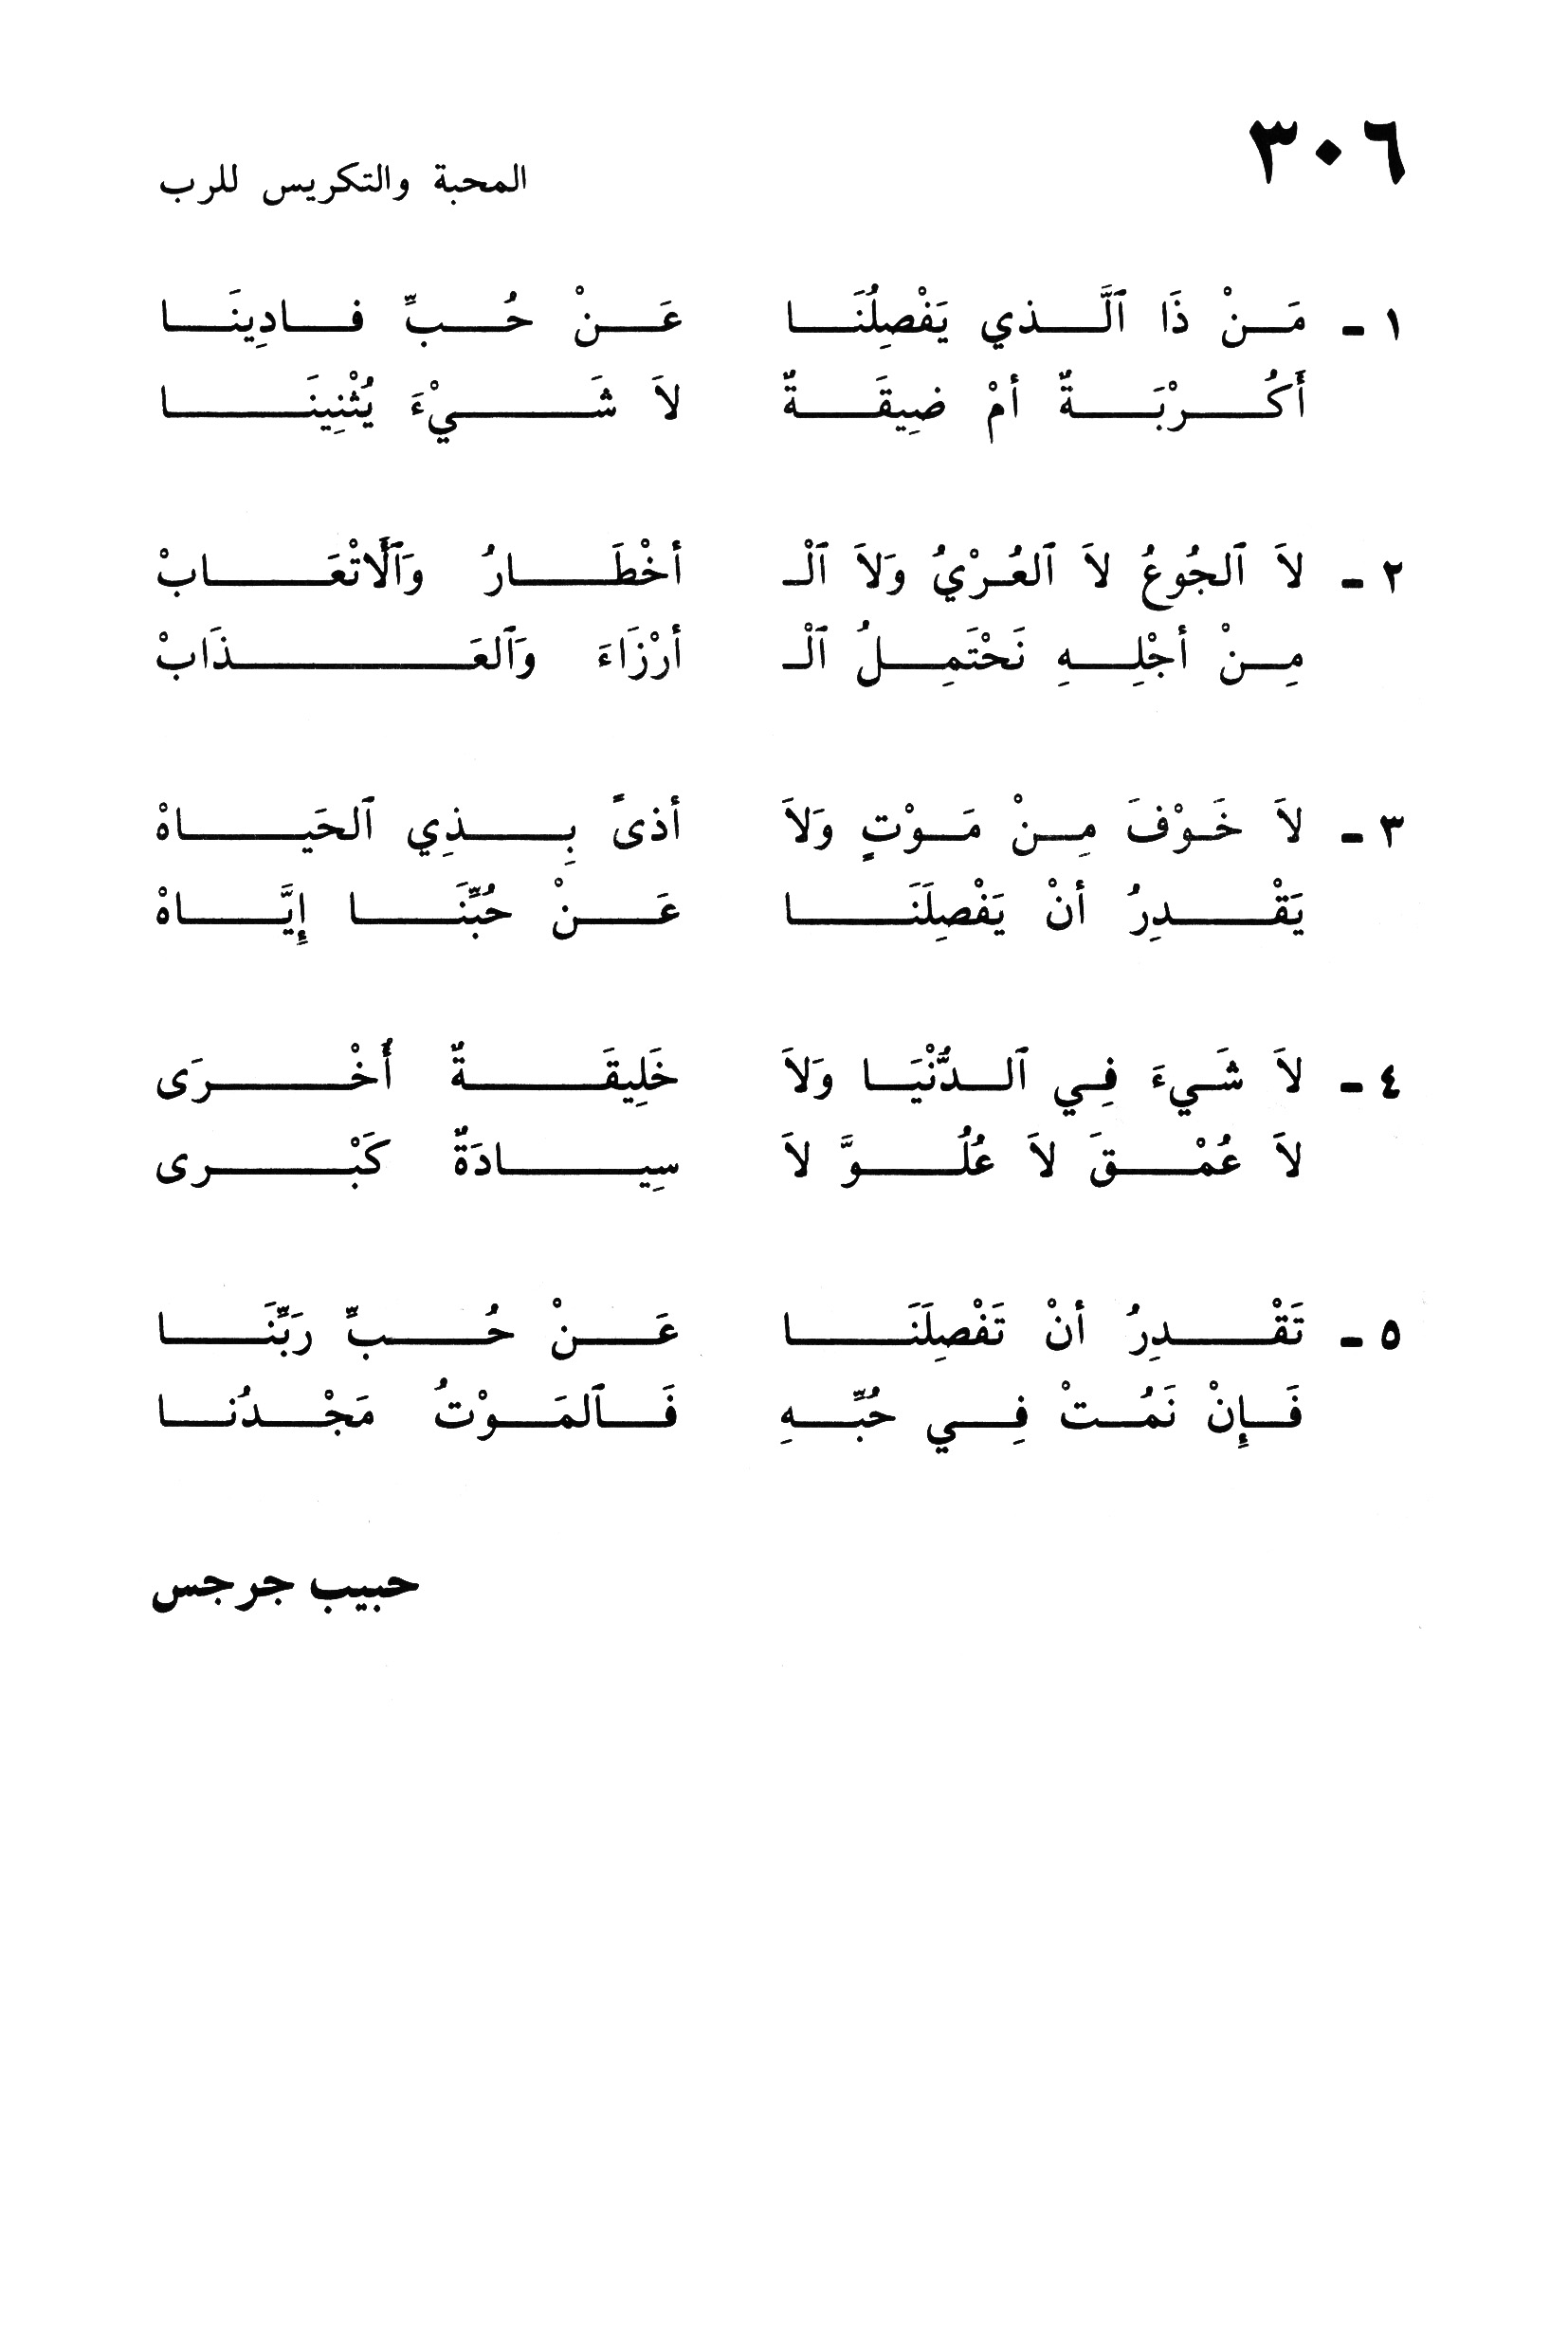 ٣٠٦
المحبة والتكريس للرب
١ - مَنْ ذَا ٱلَّذي يَفْصِلُنَا عَنْ حُبِّ فادِينَا
أَكُرْبَةٌ أمْ ضِيقَةٌ لاَ شَيْءَ يُثْنِينَا
٢ - لاَ ٱلجُوعُ لاَ ٱلعُرْيُ وَلاَ ٱلْـ أخْطَارُ وَٱلَأتْعَابْ
مِنْ أجْلِهِ نَحْتَمِلُ ٱلْـ أرْزَاءَ وَٱلعَذَابْ
٣ - لاَ خَوْفَ مِنْ مَوْتٍ وَلاَ أذىً بِذِي ٱلحَيَاهْ
يَقْدِرُ أنْ يَفْصِلَنَا عَنْ حُبِّنَا إِيَّاهْ
٤ - لاَ شَيءَ فِي ٱلدُّنْيَا وَلاَ خَلِيقَةٌ أُخْرَى
لاَ عُمْقَ لاَ عُلُوَّ لاَ سِيادَةٌ كَبْرى
٥ - تَقْدِرُ أنْ تَفْصِلَنَا عَنْ حُبِّ رَبِّنَا
فَإِنْ نَمُتْ فِي حُبِّهِ فَٱلمَوْتُ مَجْدُنا
حبيب جرجس